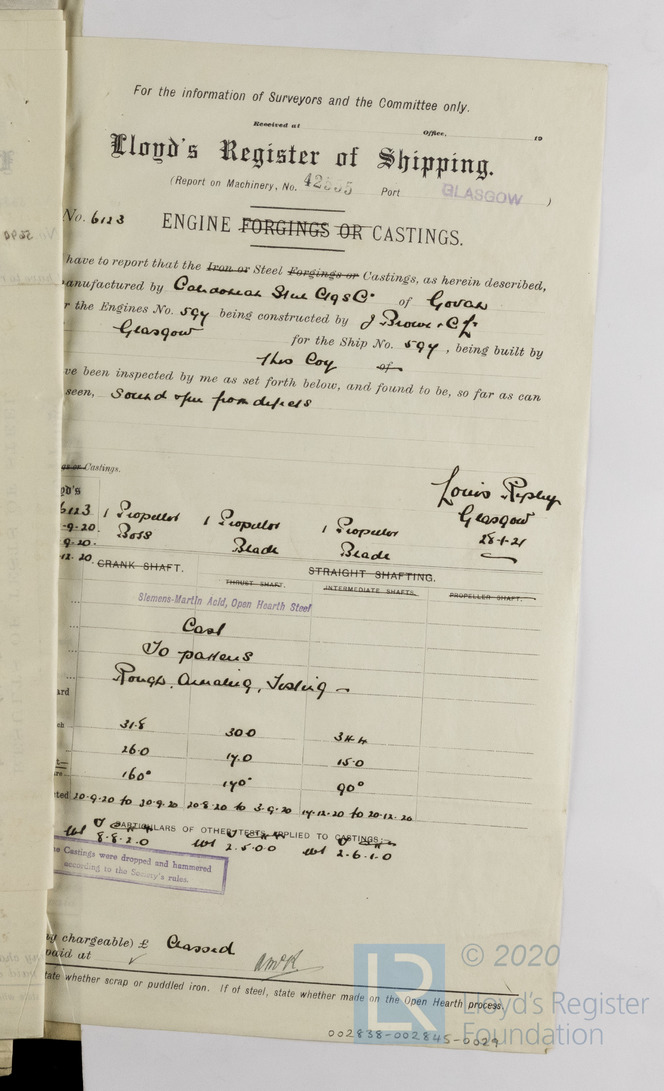 For the information of Surveyors and the Committee only.
Received at Office, 19
Lloyd's Register of Shipping.
(Report on Machinery, No. 42555 Port GLASGOW )
No. 6123 ENGINE FORGINGS OR CASTINGS.
have to report that the Iron or Steel Forgings or Castings, as herein described,
anufactured by Caledonian Steel of Govan
r the Engines No. 597 being constructed by J Brown & Co
Glasgow for the Ship No. 597, being built by
This Coy of
ve been inspected by me as set forth below, and found to be, so far as can
seen, Sound & free from defects
or Castings.
Louis Ripley
Glasgow
28-1-21
yd's
6123 1 Propellor 1 Propellor 1 Propellor
-9-20. Boss Blade Blade
9.20.
12.20. CRANK SHAFT. STRAIGHT SHAFTING.
THRUST SHAFT. INTERMEDIATE SHAFTS. PROPELLER SHAFT.
Siemens-Martin Acid, Open Hearth Steel
Cast
To pattens
Rough. Annealing, Testing
ard
ch 31.8 30.0 34.4
26.0 17.0 15.0
re 160° 170° 90°
ted 20-9-20 to 30-9-20 20-8-20 to 3-9-20 17-12-20 to 20-12-20
PARTICULARS OF OTHER TESTS APPLIED TO CASTINGS:—
Wt 8.8.2.0 Wt 2.5.0.0 Wt 2.6.1.0
e Castings were dropped and hammered
according to the Society's rules.
g chargeable) £ Classed
paid at
tate whether scrap or puddled iron. If of steel, state whether made on the Open Hearth process.
LR © 2020
Lloyd's Register
Foundation
002838-002845-0029